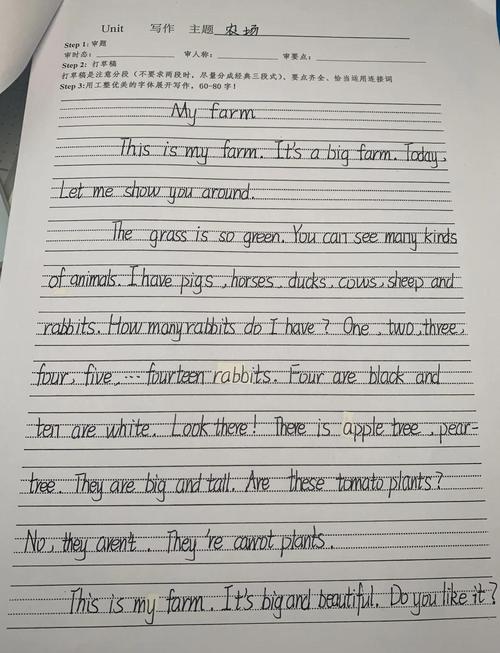 Unit 写作 主题 农场
Step 1: 审题
审时态: 审人称: 审要点:
Step 2: 打草稿
打草稿是注意分段(不要求两段时,尽量分成经典三段式)、要点齐全、恰当运用连接词
Step 3:用工整优美的字体展开写作, 60-80 字!
My farm
This is my farm. It's a big farm. Today,
Let me show you around.
The grass is so green. You can see many kinds
of animals. I have pigs, horses, ducks, cows, sheep and
rabbits. How many rabbits do I have? One, two, three,
four, five, ... fourteen rabbits. Four are black and
ten are white. Look there! There is apple tree, pear-
tree. They are big and tall. Are these tomato plants?
No, they aren't. They're carrot plants.
This is my farm. It's big and beautiful. Do you like it?